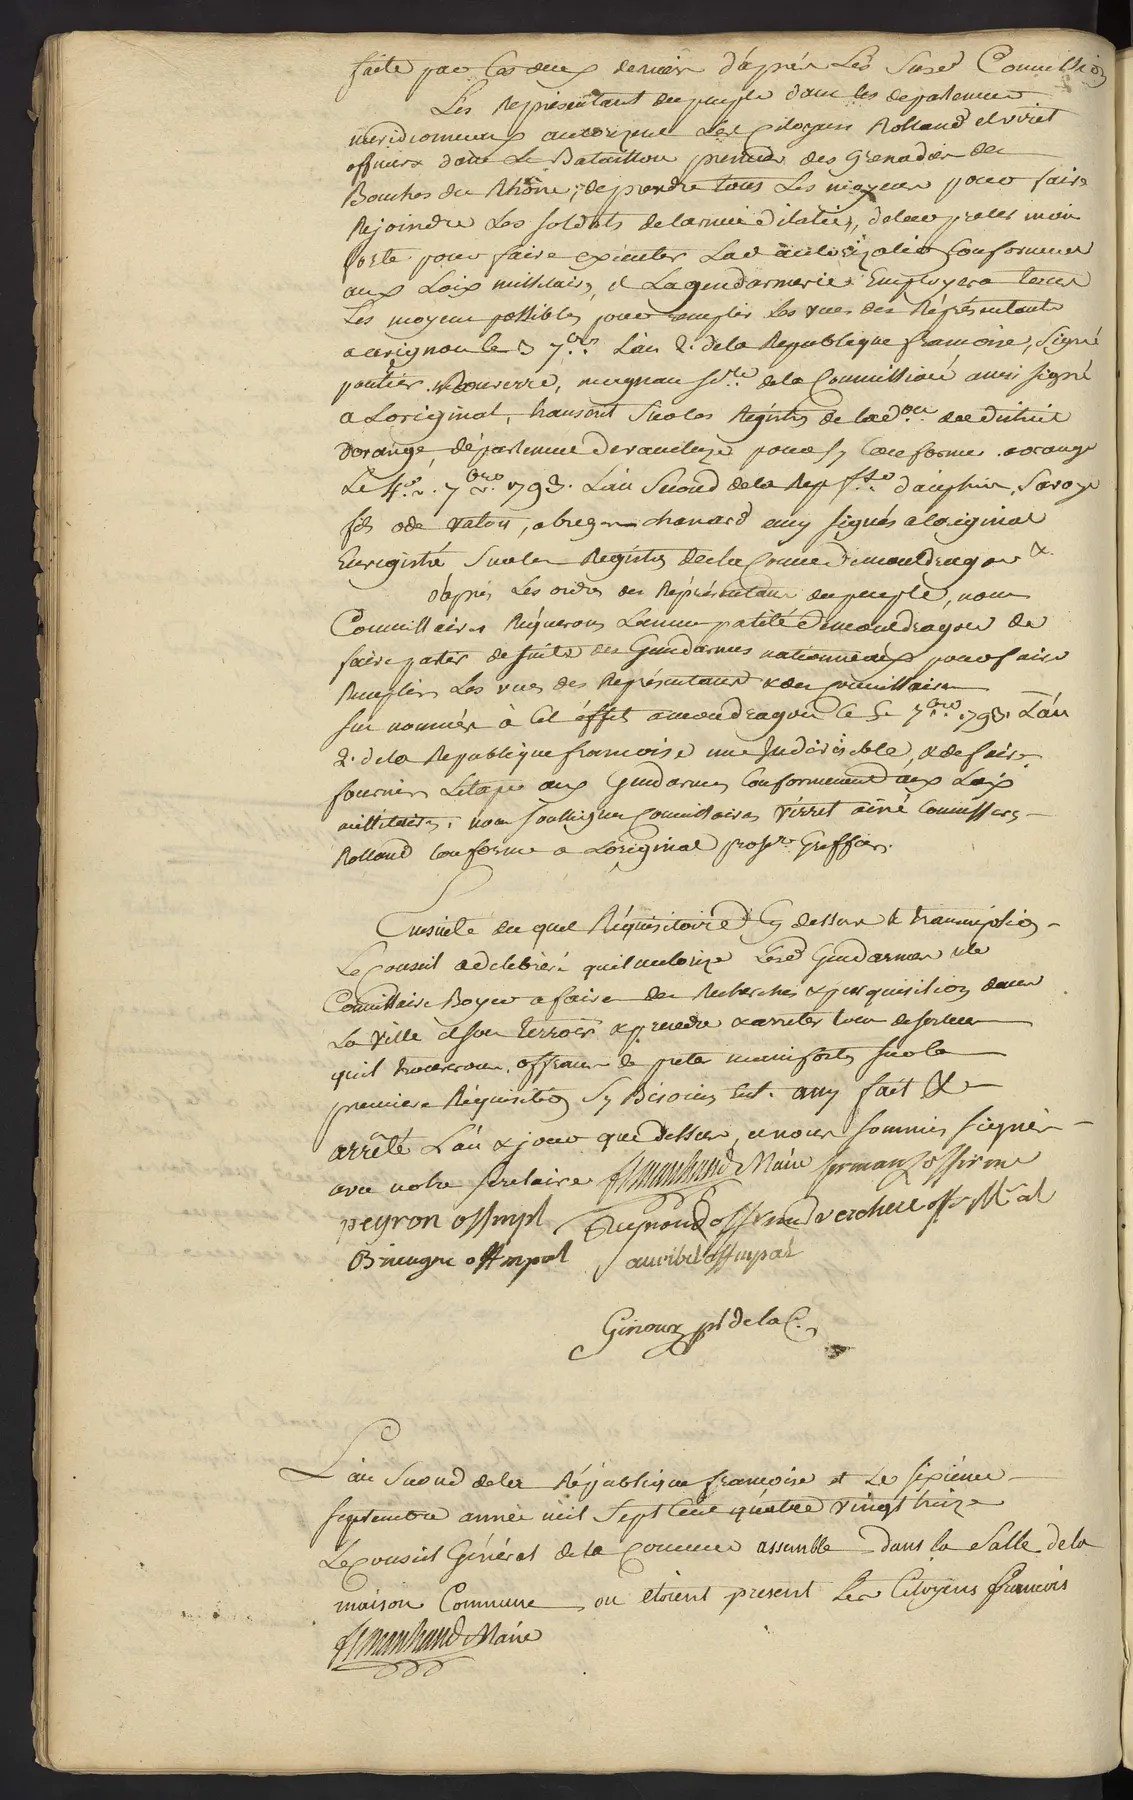 faite par les deux dernier d'aprés Les Susd Commissio
Les Représentant du peuple dans les departement
meridionneaux autorizent Les Citoyens Rolland et viret
officiers dans Le Bataillon premier des Grenadier des
Bouches du Rhône, de prendre tous Les moyens pour faire
Rejoindre Les soldats de larmée d'italie, de leur preter main
forte pour faire executer Lad autorization Conformement
aux Loix militaires, et La gendarmerie Employera tous
Les moyens possibles pour remplir Les vues des Représentants
a avignon le 3 7bre Lan 2. de la Republique francoise, Signé
poultier Rouverre, mugnan S.re de la Commission aussi signé
a Loriginal, transcrit sur les Régistres de lad. du district
Dorange, département de vaucluse pour Conforme. a orange
Le 4. 7bre 1793. Lan Second de la Rep fse dauphin, Savoye
fils ode valon, abregen chanard aussy signés a loriginal
Enregistré Sur les Registres de la Comne de mondragon &
d'aprés Les ordres des Représentans du peuple, nous
Commissaires Réquerons La municipalité de mondragon de
faire partir de suite des Gendarmes nationneaux pour faire
Remplir Les vues des Représentans & des Commissaires
sus nommés à Cet éffet a mondragon le 5 7bre 1793. L'an
2. de la Republique francoise une Indivisible, & de faire
fournir Létape aux Gendarmes Conformement aux Loix
militaires. nous soussignes Commissaires Virret ainé Commissre
Rolland Conforme a Loriginal Greffier.
Ensuite du quel Réquisitoire Cy dessus & transcription
Le Conseil a deliberé quil autorize Lesd Gendarmes & le
Commissaire Boyer a faire des Recherches & perquisitions dans
La Ville et son terroir & prendre & arreter tous deserteurs
quil trouveront, offrant de preter mainforte sur la
premiere Réquisition Sy Besoin Est. ainsy fait &
arrêté L'an & jour que dessus, et nous sommes signés
avec notre secretaire f marchand Maire
peyron offmpl Reynaud off verchere off Mpal
Bruegne offmpal auribel offmpal
Ginoux pr de la C.
L'an Second de la Républlique francoise et Le sixieme
septembre année mil Sept Cent quatre vingt treize
Le Conseil Général de la Commune assemblé dans la Salle de la
maison Commune, ou étoient present Les Citoyens francois
f marchand Maire